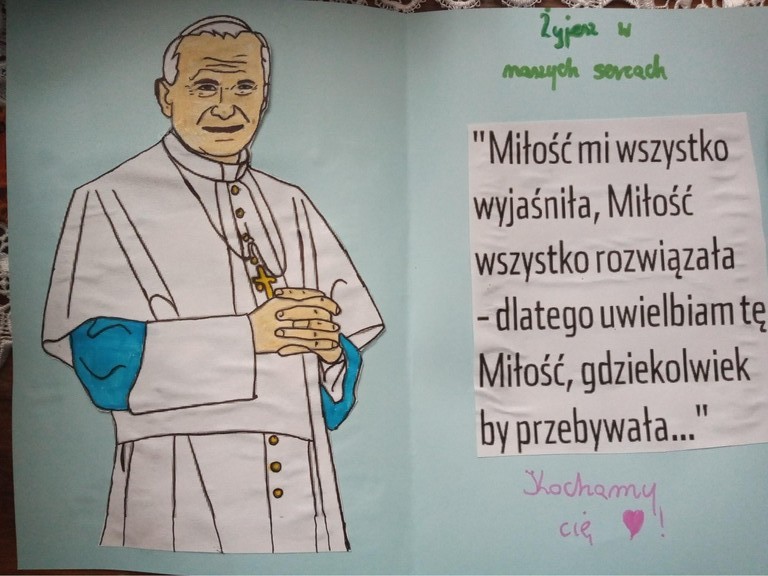 Żyjesz w
naszych sercach
"Miłość mi wszystko
wyjaśniła, Miłość
wszystko rozwiązała
- dlatego uwielbiam tę
Miłość, gdziekolwiek
by przebywała..."
Kochamy
cię ♥!